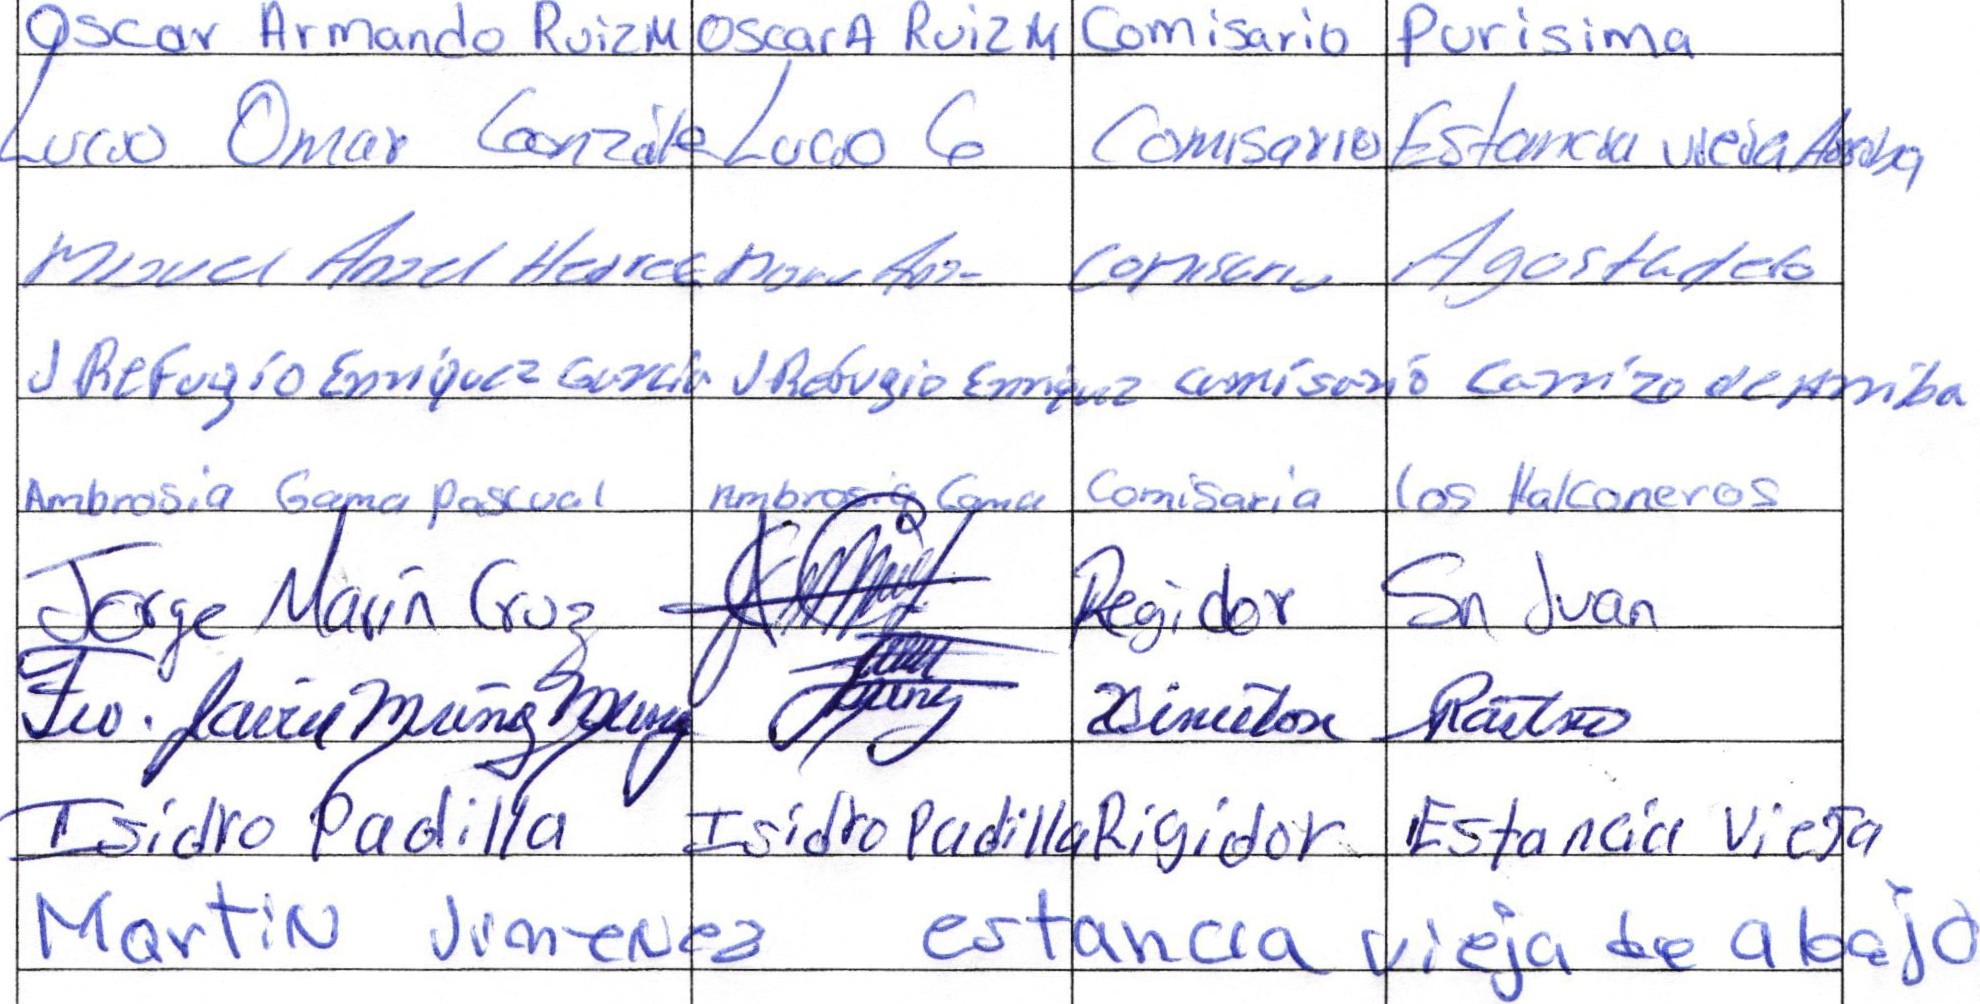 Oscar Armando Ruiz M Oscar A Ruiz M Comisario Purisima
Lucio Omar Gonzále Lucio G Comisario Estancia vieja Arriba
Miguel Angel Comisario Agostadero
J Refugio Enriquez Garcia J Refugio Enriquez comisario Carrizo de Arriba
Ambrosia Gama Pascual Ambrosia Gama Comisaria los Halconeros
Jorge Marín Cruz Regidor Sn Juan
Fco. Javier Muñoz
Isidro Padilla Isidro Padilla Rigidor Estancia Vieja
Martin Jimenez estancia vieja de abajo